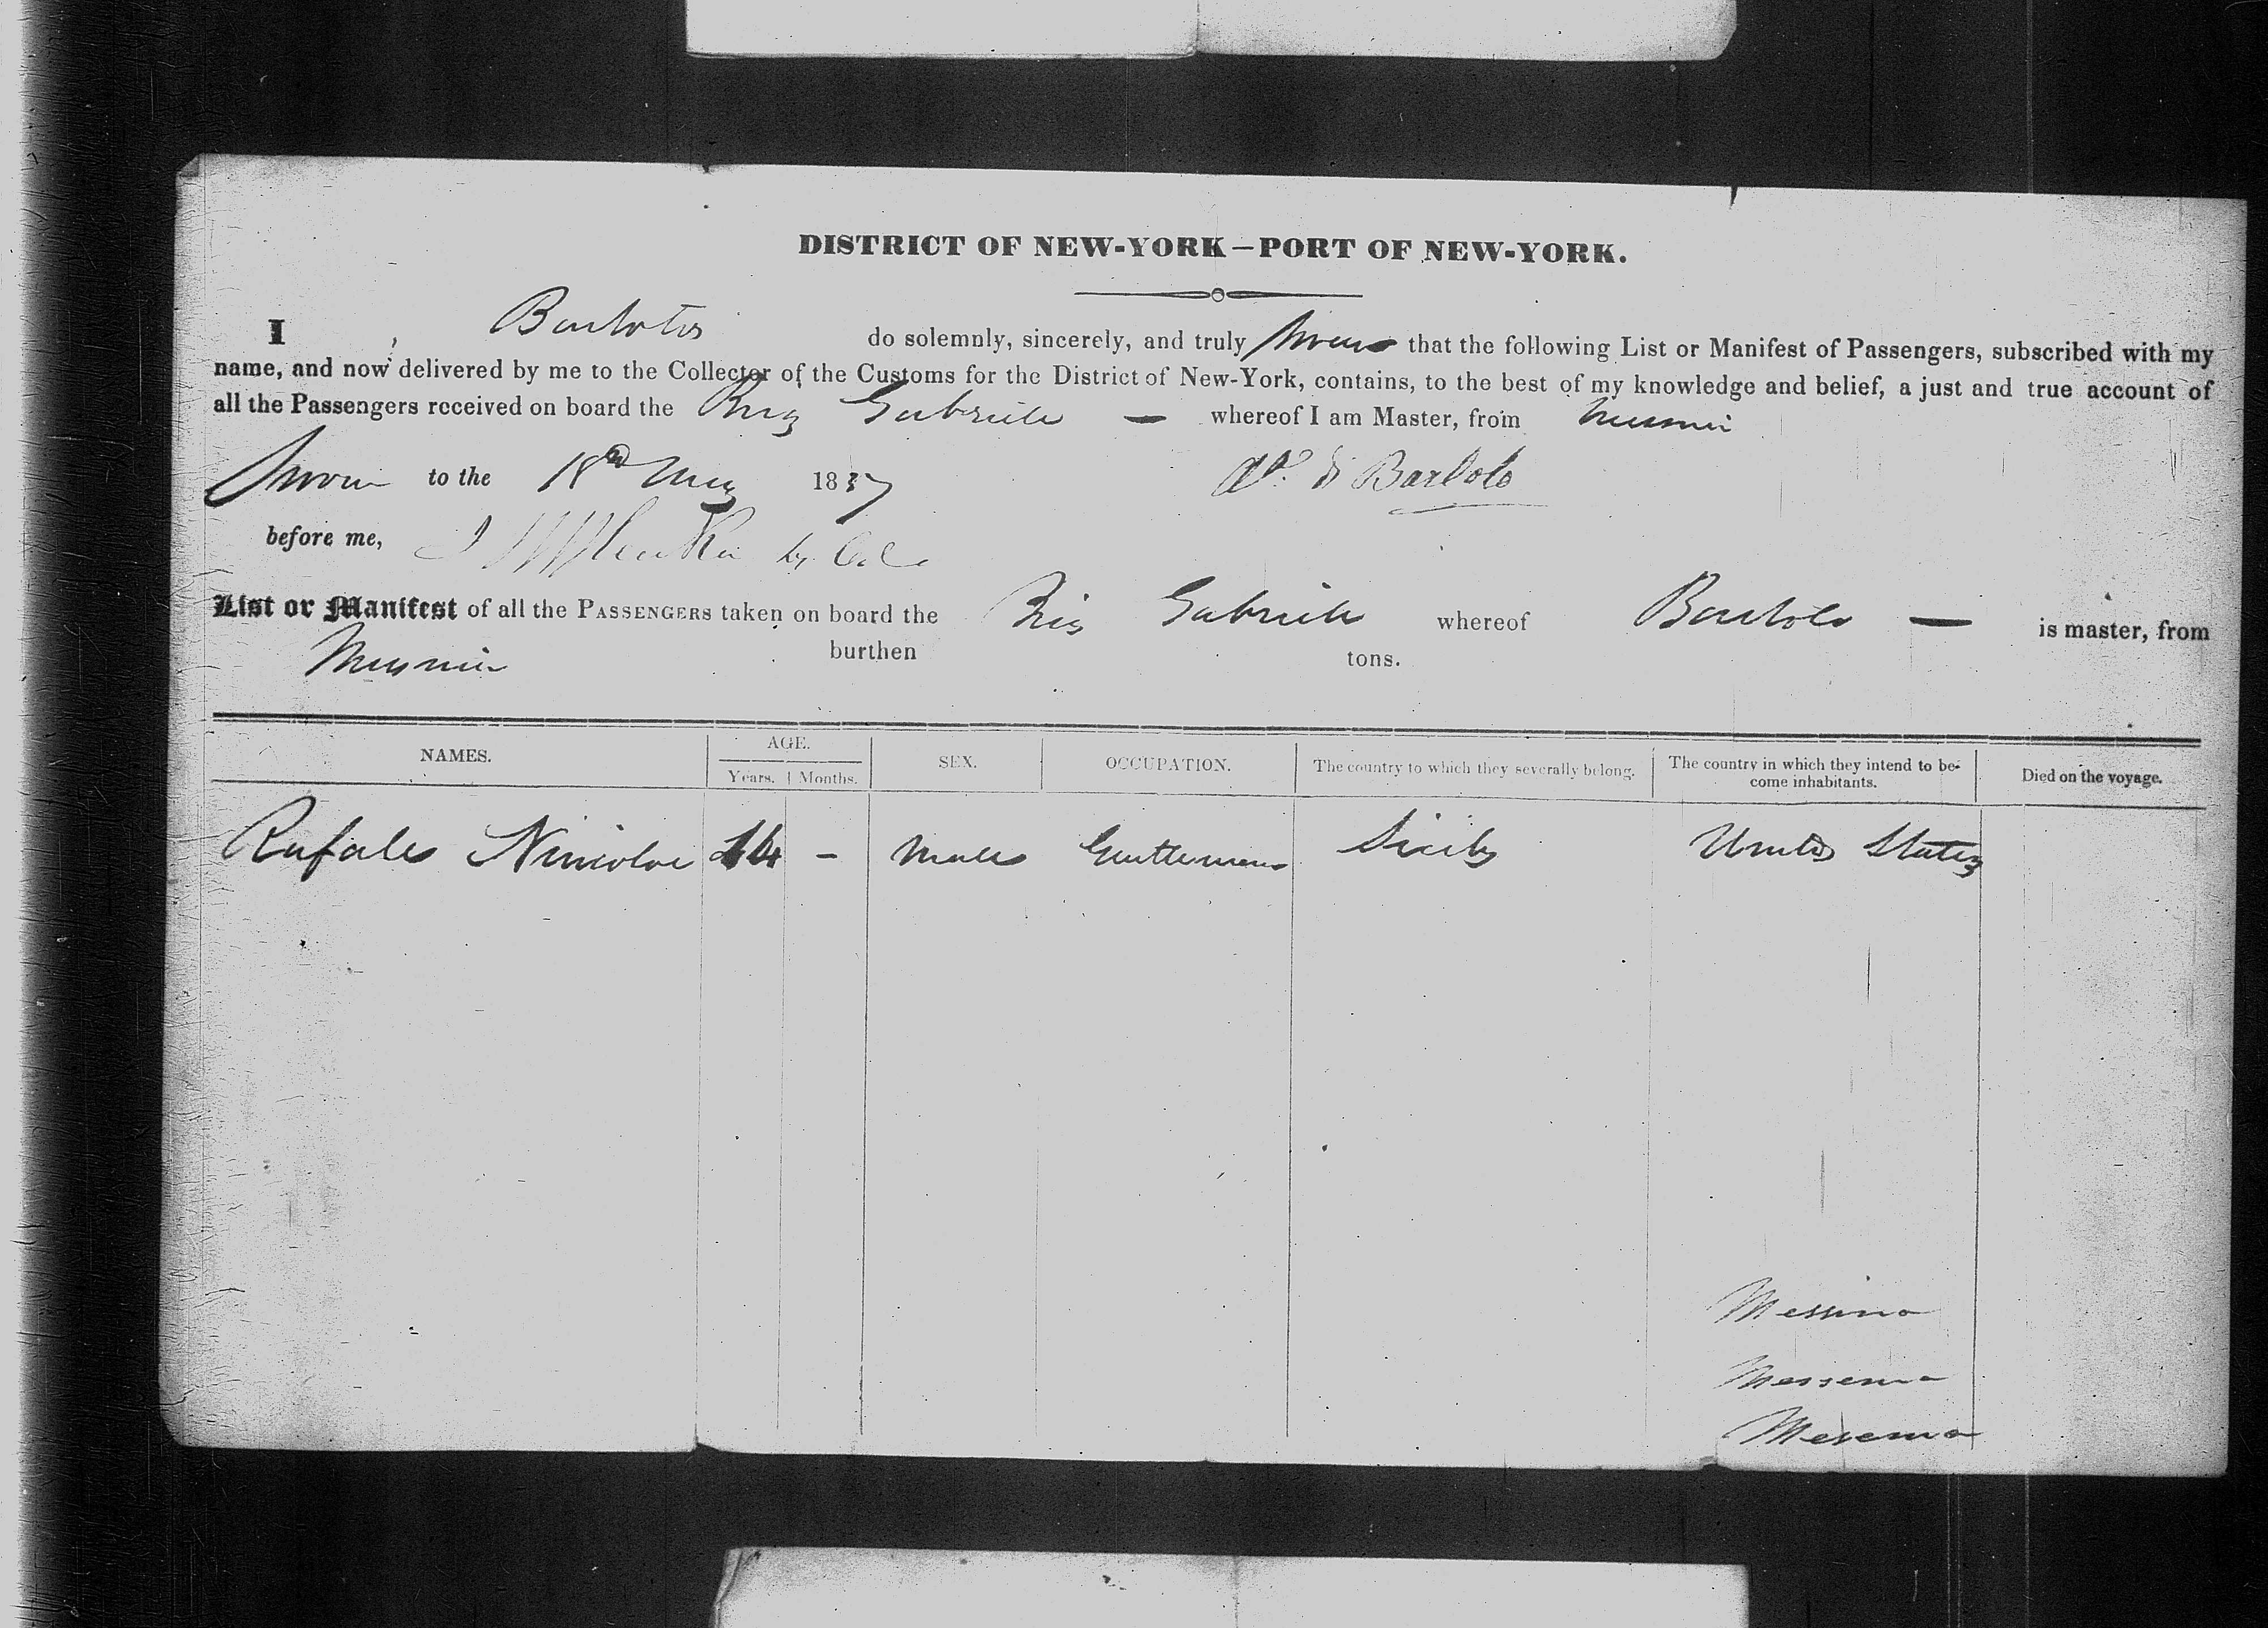 DISTRICT OF NEW-YORK—PORT OF NEW-YORK.
I, Bartolo do solemnly, sincerely, and truly swear that the following List or Manifest of Passengers, subscribed with my
name, and now delivered by me to the Collector of the Customs for the District of New-York, contains, to the best of my knowledge and belief, a just and true account of
all the Passengers received on board the Brig Gabriele — whereof I am Master, from Messina
Sworn to the 18th May 1837 di Bartolo
before me,
List or Manifest of all the PASSENGERS taken on board the Brig Gabriele whereof Bartolo — is master, from
Messina burthen tons.
NAMES. AGE. Years. Months. SEX. OCCUPATION. The country to which they severally belong. The country in which they intend to become inhabitants. Died on the voyage.
Rafale - Male Gentleman Sicily United States
Messina
Messena
Mesena